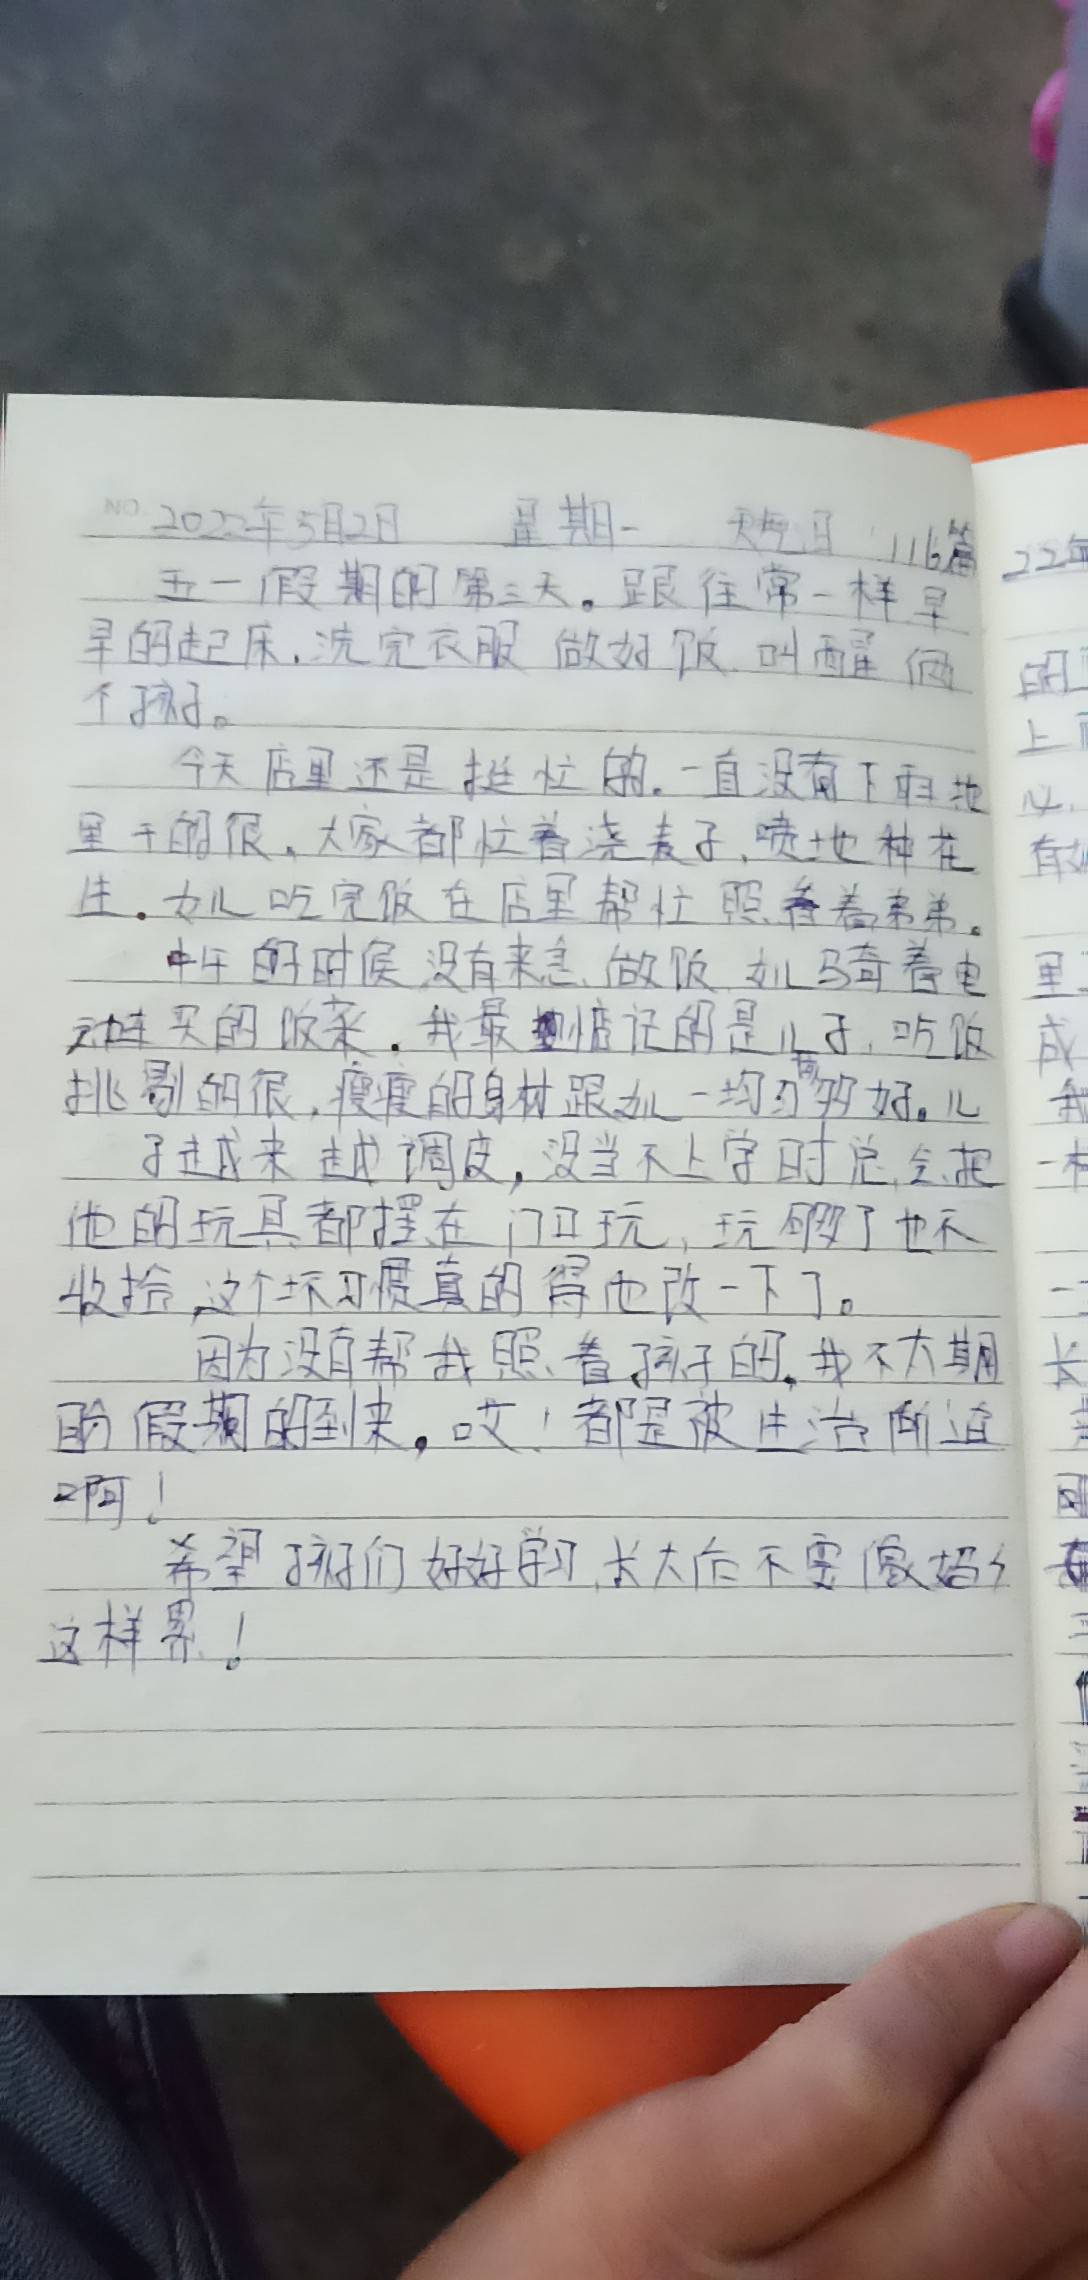 NO 2022年5月2日 星期一 天气 116篇
五一假期的第三天。跟往常一样早
早的起床.洗完衣服 做好饭.叫醒俩
个孩子。
今天店里还是挺忙的.一直没有下雨地
里干的很、大家都忙着浇麦子、喷地种花
生.女儿吃完饭在店里帮忙照看着弟弟。
中午的时候没有来急做饭 女儿骑着电
动车买的饭菜.我最惦记的是儿子.吃饭
挑剔的很,瘦瘦的身材跟女儿一均匀有多好。儿
子越来越调皮,没当不上学时总会把
他的玩具都摆在门口玩,玩够了也不
收拾,这个坏习惯真的得他改一下了。
因为没有帮我照着孩子的.我不太期
盼假期的到来。哎!都是被生活所迫
啊!
希望孩子们好好学习,长大后不要像妈妈
这样累!
22年
的
上
里
成
我
一样
长